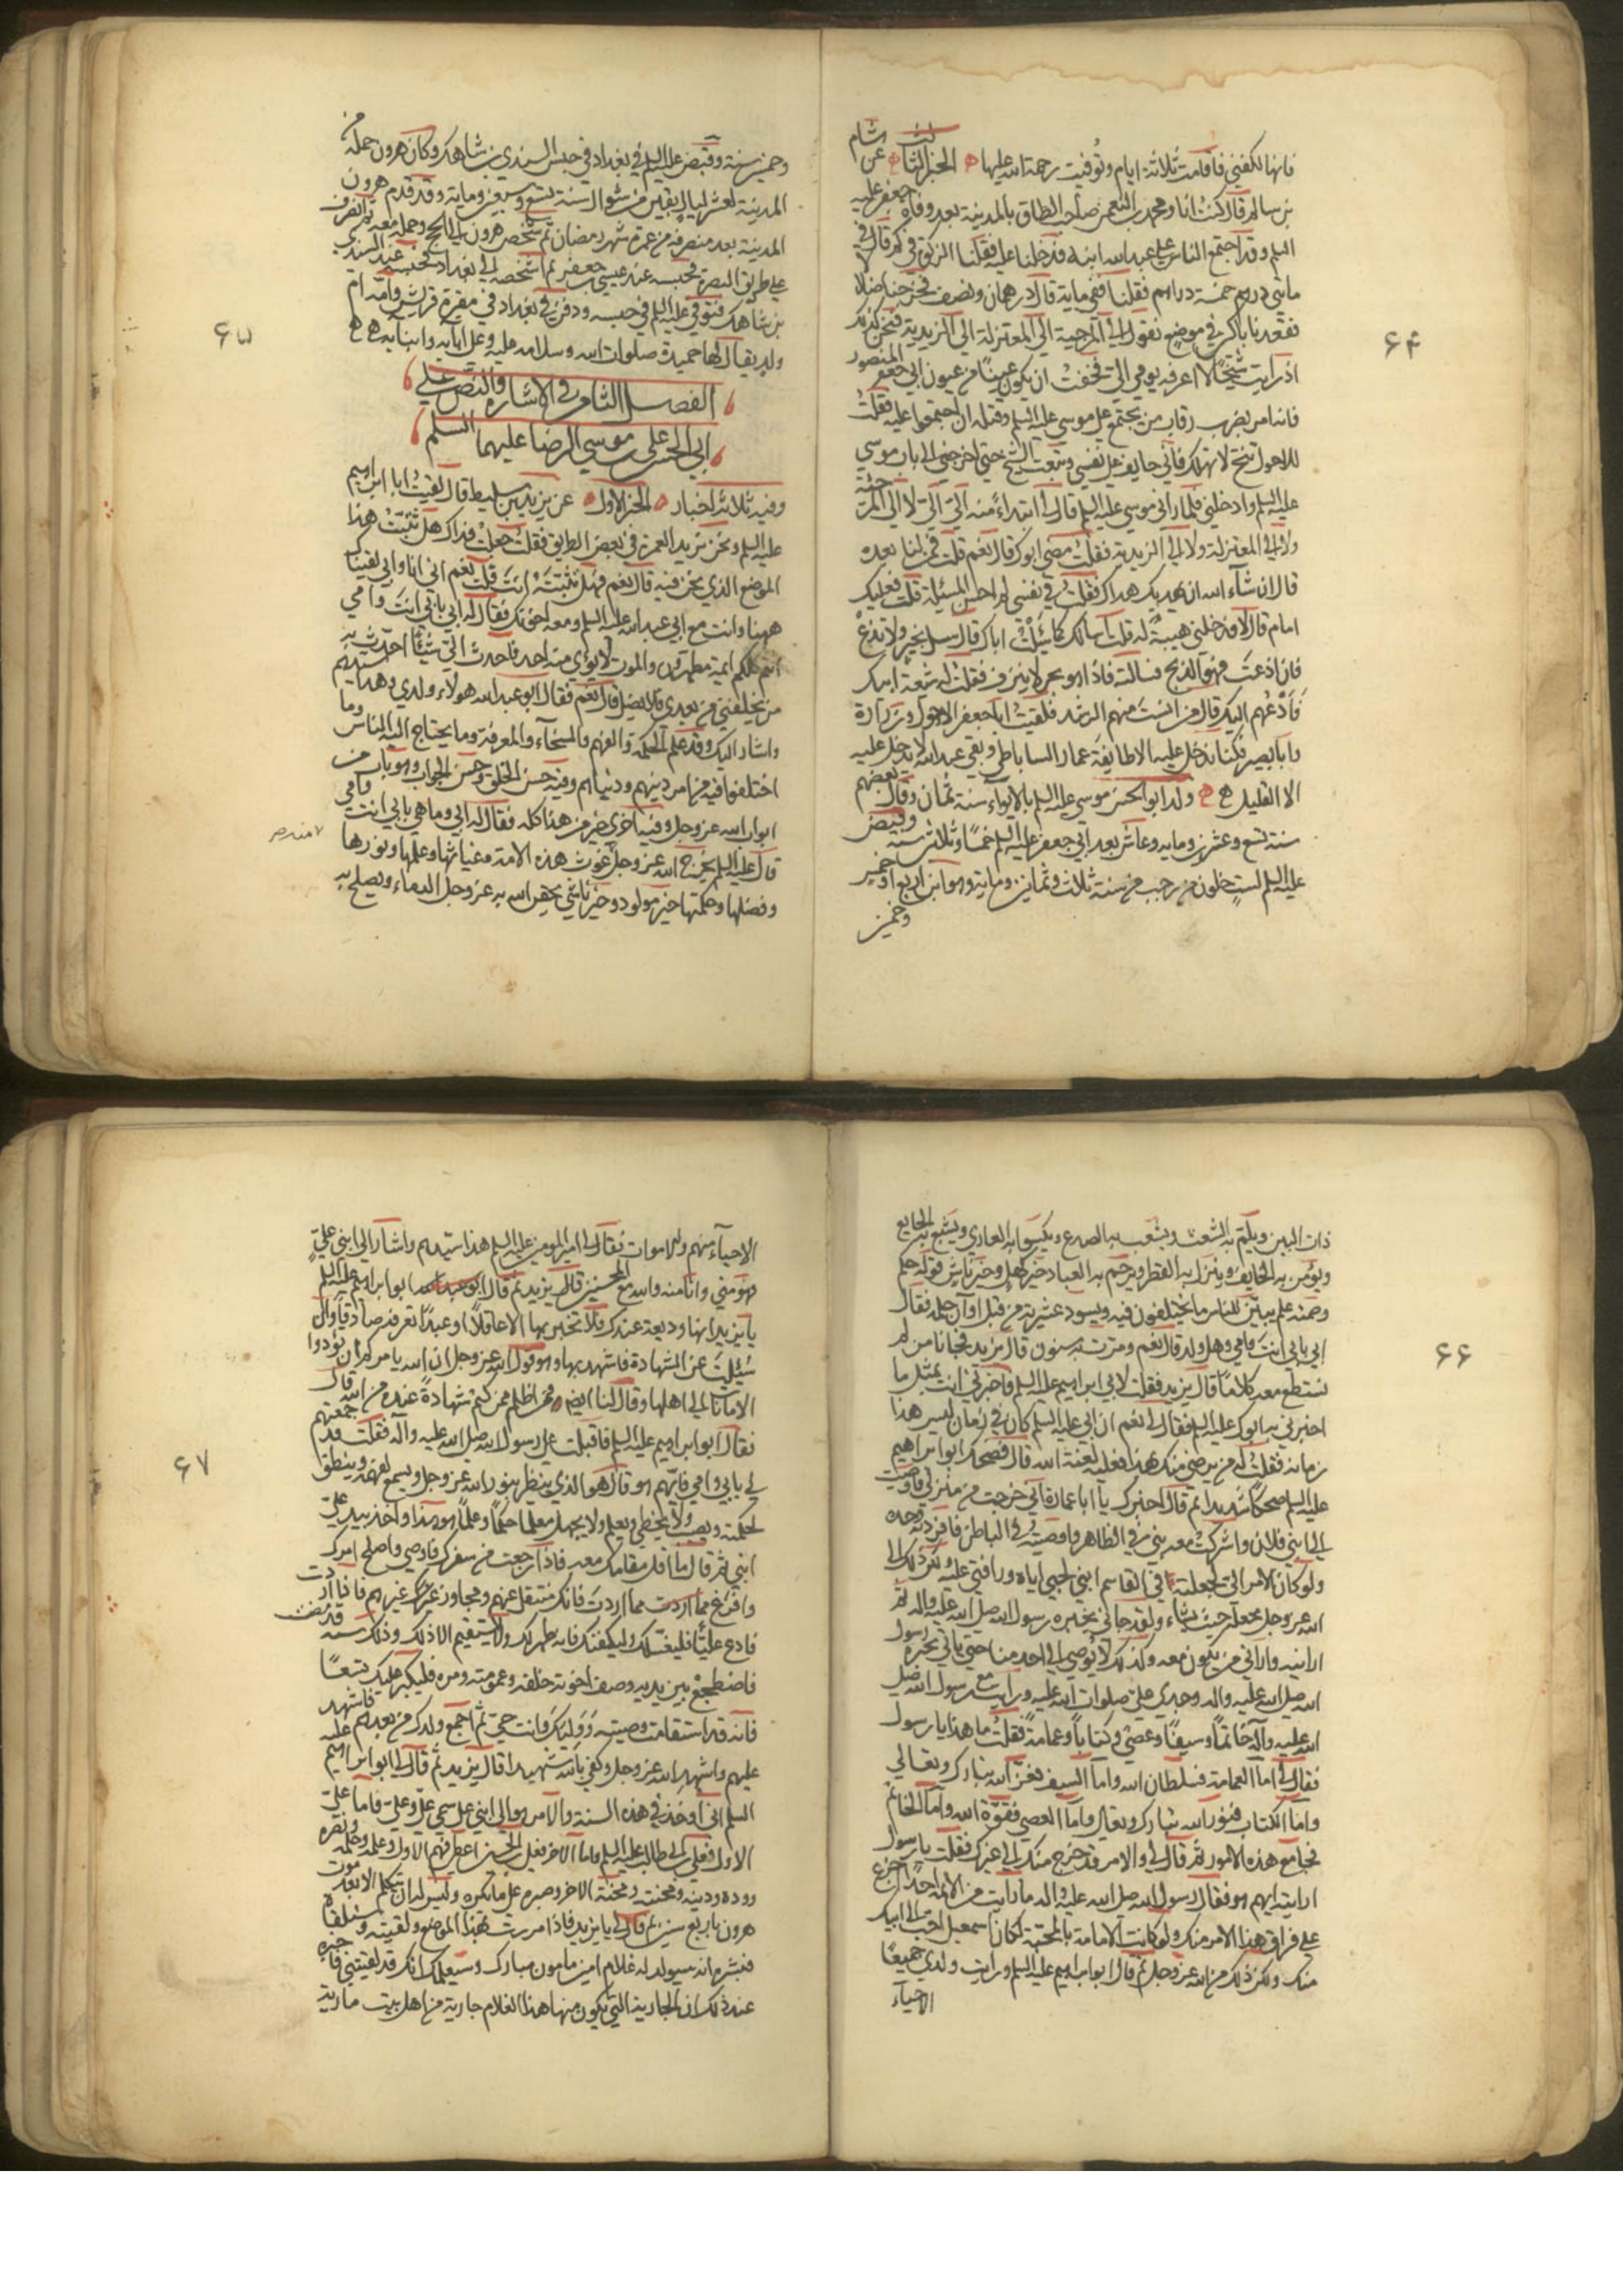 فانها تكفيني فاقامت ثلاثة ايام وتوفيت رحمة الله عليها الخبر الثالث عن هشام
بن سالم قال كنت انا ومحمد بن النعمن صاحب الطاق بالمدينة بعد وفاة جعفر عليه
السلم وقد اجتمع الناس على عبد الله ابنه فدخلنا عليه فقلنا الزكوة في كم قال في
مائتي درهم خمسة دراهم فقلنا ففي مائة قال درهمان ونصف فخرجنا ضلالا
فقعدنا باكين في موضع نقول الى المرجية الى المعتزلة الى الزيدية فنحن كذلك
اذ رايت شيخا لا اعرفه يومي الي فخفت ان يكون عينا من عيون ابي جعفر المنصور
فانه امر بضرب رقاب من يجتمع على موسى عليه السلم وقتله ان اجتمعوا عليه فقلت
للاحول تنح لا تهلك فاني خايف على نفسي وتبعت الشيخ حتى اخرجني الى باب موسى
عليه السلم وادخلني فلما راني موسى عليه السلم قال لي ابتداء منه الي الي لا الى المرجئة
ولا الى المعتزلة ولا الى الزيدية فقلت مضى ابوك قال نعم قلت فمن لنا بعده
قال ان شاء الله ان يهديك هداك فقلت في نفسي لم احسن المسئلة قلت فعليك
امام قال لا فدخلني هيبة له قلت اسالك كما سئلت اباك قال سل تخبر ولا تذع
فان اذعت فهو الذبح فسالته فاذا هو بحر لا ينزف فقلت له شيعة ابيك
فادعهم اليك قال من انست منهم الرشد فلقيت ابا جعفر الاحول وزرارة
وابا بصير فكنا ندخل عليه الا طايفة عمار الساباطي وبقي عبد الله لا يدخل عليه
الا القليل ولد ابو الحسن موسى عليه السلم بالابواء سنة ثمان وقال بعضهم
سنة تسع وعشرين ومايه وعاش بعد ابي جعفر عليه السلم خمسا وثلاثين سنة وقبض
عليه السلم لست خلون من رجب من سنة ثلاث وثمانين ومايه وهو ابن اربع او خمس
وخمسين
۶۴
وخمسين سنة وقبض عليه السلم في بغداد في حبس السندي بن شاهك وكان هرون حمله من
المدينة لعشر ليال بقين من شوال سنة تسع وسبعين ومايه وقد قدم هرون
المدينة بعد منصرفه من عمرة شهر رمضان ثم شخص هرون الى الحج وحمله معه ثم انصرف
على طريق البصرة فحبسه عند عيسى بن جعفر ثم اشخصه الى بغداد فحبسه عند السندي
بن شاهك فتوفي عليه السلم في حبسه ودفن في بغداد في مقبرة قريش وامه ام
ولد يقال لها حميدة صلوات الله وسلامه عليه وعلى ابايه وابنايه
الفصل الثامن في الاشاره والنص على
ابي الحسن علي بن موسى الرضا عليهما السلم
وفيه ثلاثة اخبار الخبر الاول عن يزيد بن سليط قال لقيت ابا ابراهيم
عليه السلم ونحن نريد العمرة في بعض الطريق فقلت جعلت فداك هل تثبت هذا
الموضع الذي نحن فيه قال نعم فهل تثبته انت قلت نعم اني انا وابي لقيناك
ههنا وانت مع ابي عبد الله عليه السلم ومعه اخوتك فقال له ابي بابي انت وامي
انتم كلكم ايمة مطهرون والموت لا يعرى منه احد فاحدث الي شيئا احدث به
من يخلفني من بعدي فلا يضل قال نعم فقال ابو عبد الله هولاء ولدي وهذا سيدهم
واشار اليك وقد علم الحكمة والفهم والسخاء والمعرفة وما يحتاج اليه الناس وما
اختلفوا فيه من امر دينهم ودنياهم وفيه حسن الخلق وحسن الجواب وهو باب من
ابواب الله عز وجل وفيه اخرى خير من هذا كله فقال له ابي وما هي بابي انت وامي
قال عليه السلم يخرج الله عز وجل منه غوث هذه الامة وغياثها وعلمها ونورها
وفضلها وحكمتها خير مولود وخير ناشي يحقن الله به عز وجل الدماء ويصلح به
۶۵
ذات البين ويلم به الشعث ويشعب به الصدع ويكسو به العاري ويشبع به الجايع
ويؤمن به الخايف وينزل به القطر ويرحم به العباد خير كهل وخير ناش قوله حكم
وصمته علم يبين للناس ما يختلفون فيه ويسود عشيرته من قبل اوان حلمه فقال
ابي بابي انت وامي وهل ولد قال نعم ومرت به سنون قال يزيد فجانا من لم
نستطع معه كلاما قال يزيد فقلت لابي ابراهيم عليه السلم فاخبرني انت بمثل ما
اخبرني به ابوك عليه السلم فقال لي نعم ان ابي عليه السلم كان في زمان ليس هذا
زمانه فقلت له فمن يرضى منك بهذا فعليه لعنة الله قال فضحك ابو ابراهيم
عليه السلم ضحكا شديدا ثم قال اخبرك يا ابا عمارة اني خرجت من منزلي فاوصيت
الى ابني فلان واشركت معه بني في الظاهر واوصيته في الباطن فافردته وحده
ولو كان الامر الي لجعلته في القاسم ابني لحبي اياه ورافتي عليه ولكن ذلك الى
الله عز وجل يجعله حيث يشاء ولقد جاني بخبره رسول الله صلى الله عليه واله ثم
ارانيه واراني من يكون معه وكذلك لا يوصي الى احد منا حتى ياتي بخبره رسول
الله صلى الله عليه واله وجدي علي صلوات الله عليه ورايت مع رسول الله صلى
الله عليه واله خاتما وسيفا وعصى وكتابا وعمامة فقلت ما هذا يا رسول
فقال لي اما العمامة فسلطان الله واما السيف فعز الله تبارك وتعالى
واما الكتاب فنور الله تبارك وتعالى واما العصى فقوة الله واما الخاتم
فجامع هذه الامور ثم قال لي والامر قد خرج منك الى غيرك فقلت يا رسول
ارانيه ايهم هو فقال رسول الله صلى الله عليه واله ما رايت من الائمة احدا اجزع
على فراق هذا الامر منك ولو كانت الامامة بالمحبة لكان اسمعيل احب الى ابيك
منك ولكن ذلك من الله عز وجل ثم قال ابو ابراهيم عليه السلم ورايت ولدي جميعا
الاحياء
۶۶
الاحياء منهم والاموات فقال لي امير المومنين عليه السلم هذا سيدهم واشار الى ابني علي
فهو مني وانا منه والله مع المحسنين قال يزيد ثم قال ابو ابراهيم عليه السلم
يا يزيد انها وديعة عندك فلا تخبر بها الا عاقلا او عبدا تعرفه صادقا وان
سئلت عن الشهادة فاشهد بها وهو قول الله عز وجل ان الله يامركم ان تؤدوا
الامانات الى اهلها وقال لنا ايضا ومن اظلم ممن كتم شهادة عنده من الله قال
فقال ابو ابراهيم عليه السلم فاقبلت على رسول الله صلى الله عليه واله فقلت قد جمعتهم
لي بابي وامي فايهم هو قال هو الذي ينظر بنور الله عز وجل ويسمع بفهمه وينطق
بحكمته ويصيب ولا يخطي ويعلم ولا يجهل معلما حكما وعلما هو هذا واخذ بيد علي
ابني ثم قال ما اقل مقامك معه فاذا رجعت من سفرك فاوص واصلح امرك
وافرغ مما اردت فانك منتقل عنهم ومجاور غيرهم فاذا اردت
فادع عليا فليغسلك وليكفنك فانه طهر لك ولا يستقيم الا ذلك وذلك سنة قد مضت
فاضطجع بين يديه وصف اخوته خلفه وعمومته ومره فليكبر عليك تسعا
فانه قد استقامت وصيته ووليك وانت حي ثم اجمع ولدك من بعدهم فاشهد عليه
عليهم واشهد الله عز وجل وكفى بالله شهيدا قال يزيد ثم قال لي ابو ابراهيم
السلم اني اوخذ في هذه السنة والامر هو الى ابني علي سمي علي وعلي فاما علي
الاول فعلي بن ابي طالب عليه السلم واما الاخر فعلي بن الحسين اعطي فهم الاول وعلمه وحلمه ونصره
ووده ودينه ومحنته ومحنة الاخر وصبره على ما يكره وليس له ان يتكلم الا بعد موت
هرون باربع سنين ثم قال لي يا يزيد فاذا مررت بهذا الموضع ولقيته وستلقاه
فبشره انه سيولد له غلام امين مامون مبارك وسيعلمك انك قد لقيتني فاخبره
عند ذلك ان الجارية التي يكون منها هذا الغلام جارية من اهل بيت مارية
۶۷